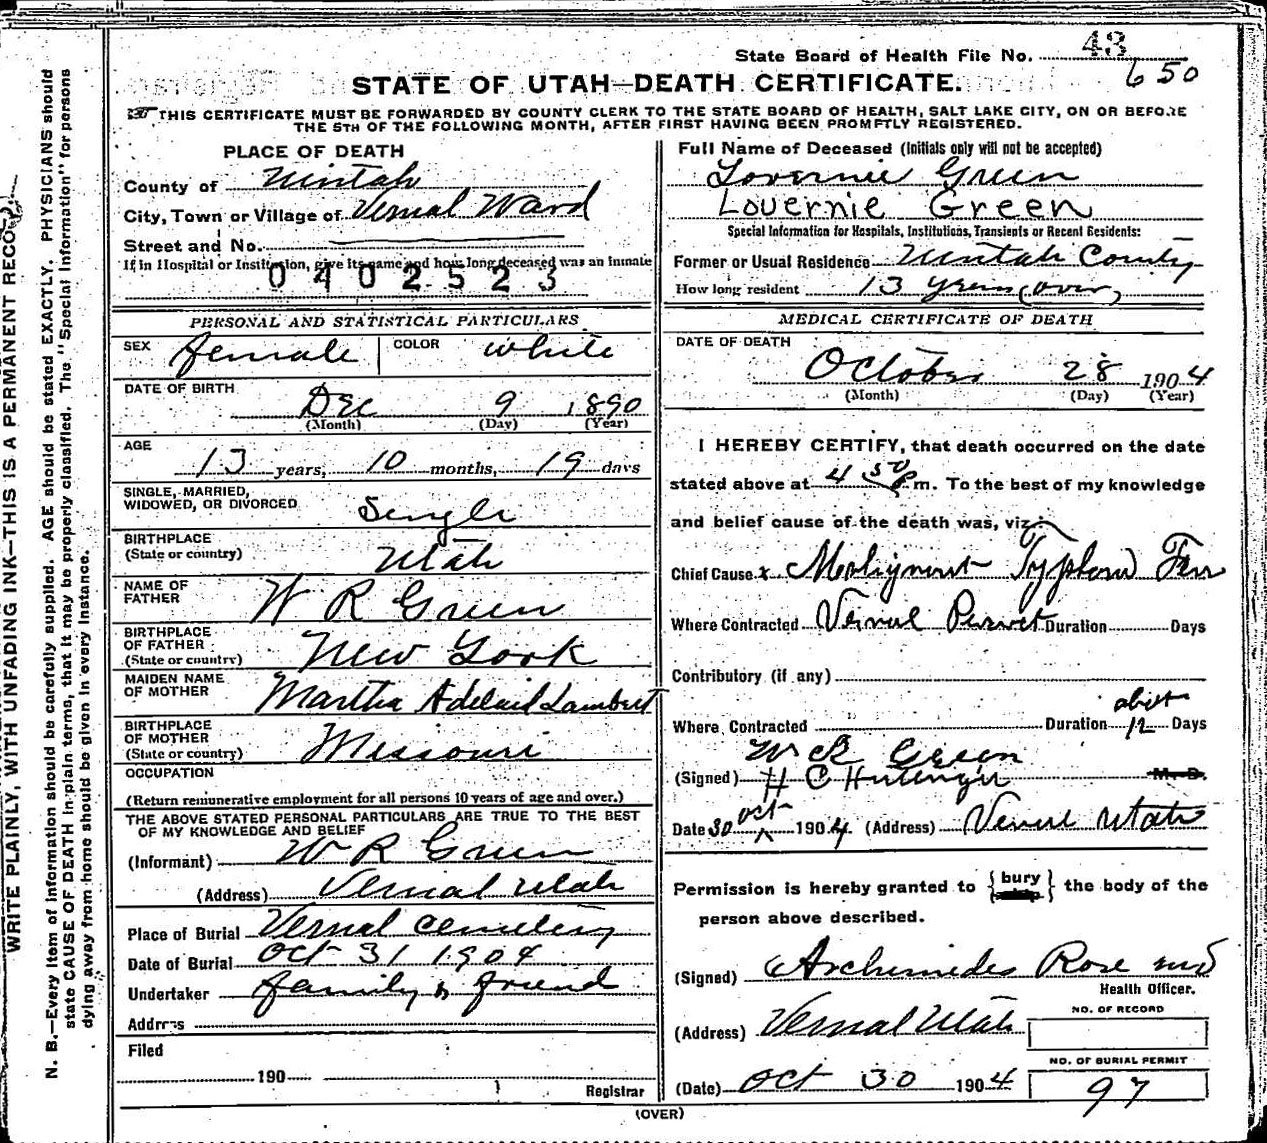 State Board of Health File No. 43
650
STATE OF UTAH—DEATH CERTIFICATE.
THIS CERTIFICATE MUST BE FORWARDED BY COUNTY CLERK TO THE STATE BOARD OF HEALTH, SALT LAKE CITY, ON OR BEFORE
THE 5TH OF THE FOLLOWING MONTH, AFTER FIRST HAVING BEEN PROMPTLY REGISTERED.
WRITE PLAINLY, WITH UNFADING INK—THIS IS A PERMANENT RECORD.
N. B.—Every item of information should be carefully supplied. AGE should be stated EXACTLY. PHYSICIANS should
state CAUSE OF DEATH in plain terms, that it may be properly classified. The "Special Information" for persons
dying away from home should be given in every instance.
PLACE OF DEATH
County of Uintah
City, Town or Village of Vernal Ward
Street and No.
If in Hospital or Institution, give its name and how long deceased was an inmate
0402523
PERSONAL AND STATISTICAL PARTICULARS
SEX female COLOR white
DATE OF BIRTH
Dec 9 1890
(Month) (Day) (Year)
AGE
13 years, 10 months, 19 days
SINGLE, MARRIED,
WIDOWED, OR DIVORCED Single
BIRTHPLACE
(State or country) Utah
NAME OF
FATHER W R Green
BIRTHPLACE
OF FATHER
(State or country) New York
MAIDEN NAME
OF MOTHER Martha Adelaid Lambert
BIRTHPLACE
OF MOTHER
(State or country) Missouri
OCCUPATION
(Return remunerative employment for all persons 10 years of age and over.)
THE ABOVE STATED PERSONAL PARTICULARS ARE TRUE TO THE BEST
OF MY KNOWLEDGE AND BELIEF
(Informant) W R Green
(Address) Vernal Utah
Place of Burial Vernal Cemetery
Date of Burial Oct 31 1904
Undertaker family & friend
Address
Filed
190
Registrar
Full Name of Deceased (Initials only will not be accepted)
Lovernie Green
Louernie Green
Special Information for Hospitals, Institutions, Transients or Recent Residents:
Former or Usual Residence Uintah County
How long resident 13 years (over)
MEDICAL CERTIFICATE OF DEATH
DATE OF DEATH
October 28 1904
(Month) (Day) (Year)
I HEREBY CERTIFY, that death occurred on the date
stated above at 4 50 P m. To the best of my knowledge
and belief cause of the death was, viz
Chief Cause Malignant Typhoid
Where Contracted Vernal Duration Days
Contributory (if any)
Where Contracted Duration about 12 Days
W R Green
(Signed) H C M. D.
Date 30 Oct 1904 (Address) Vernal Utah
Permission is hereby granted to {bury} the body of the
person above described.
(Signed) Archimedes Rose MD
Health Officer.
(Address) Vernal Utah
NO. OF RECORD
NO. OF BURIAL PERMIT
(Date) Oct 30 1904 97
(OVER)